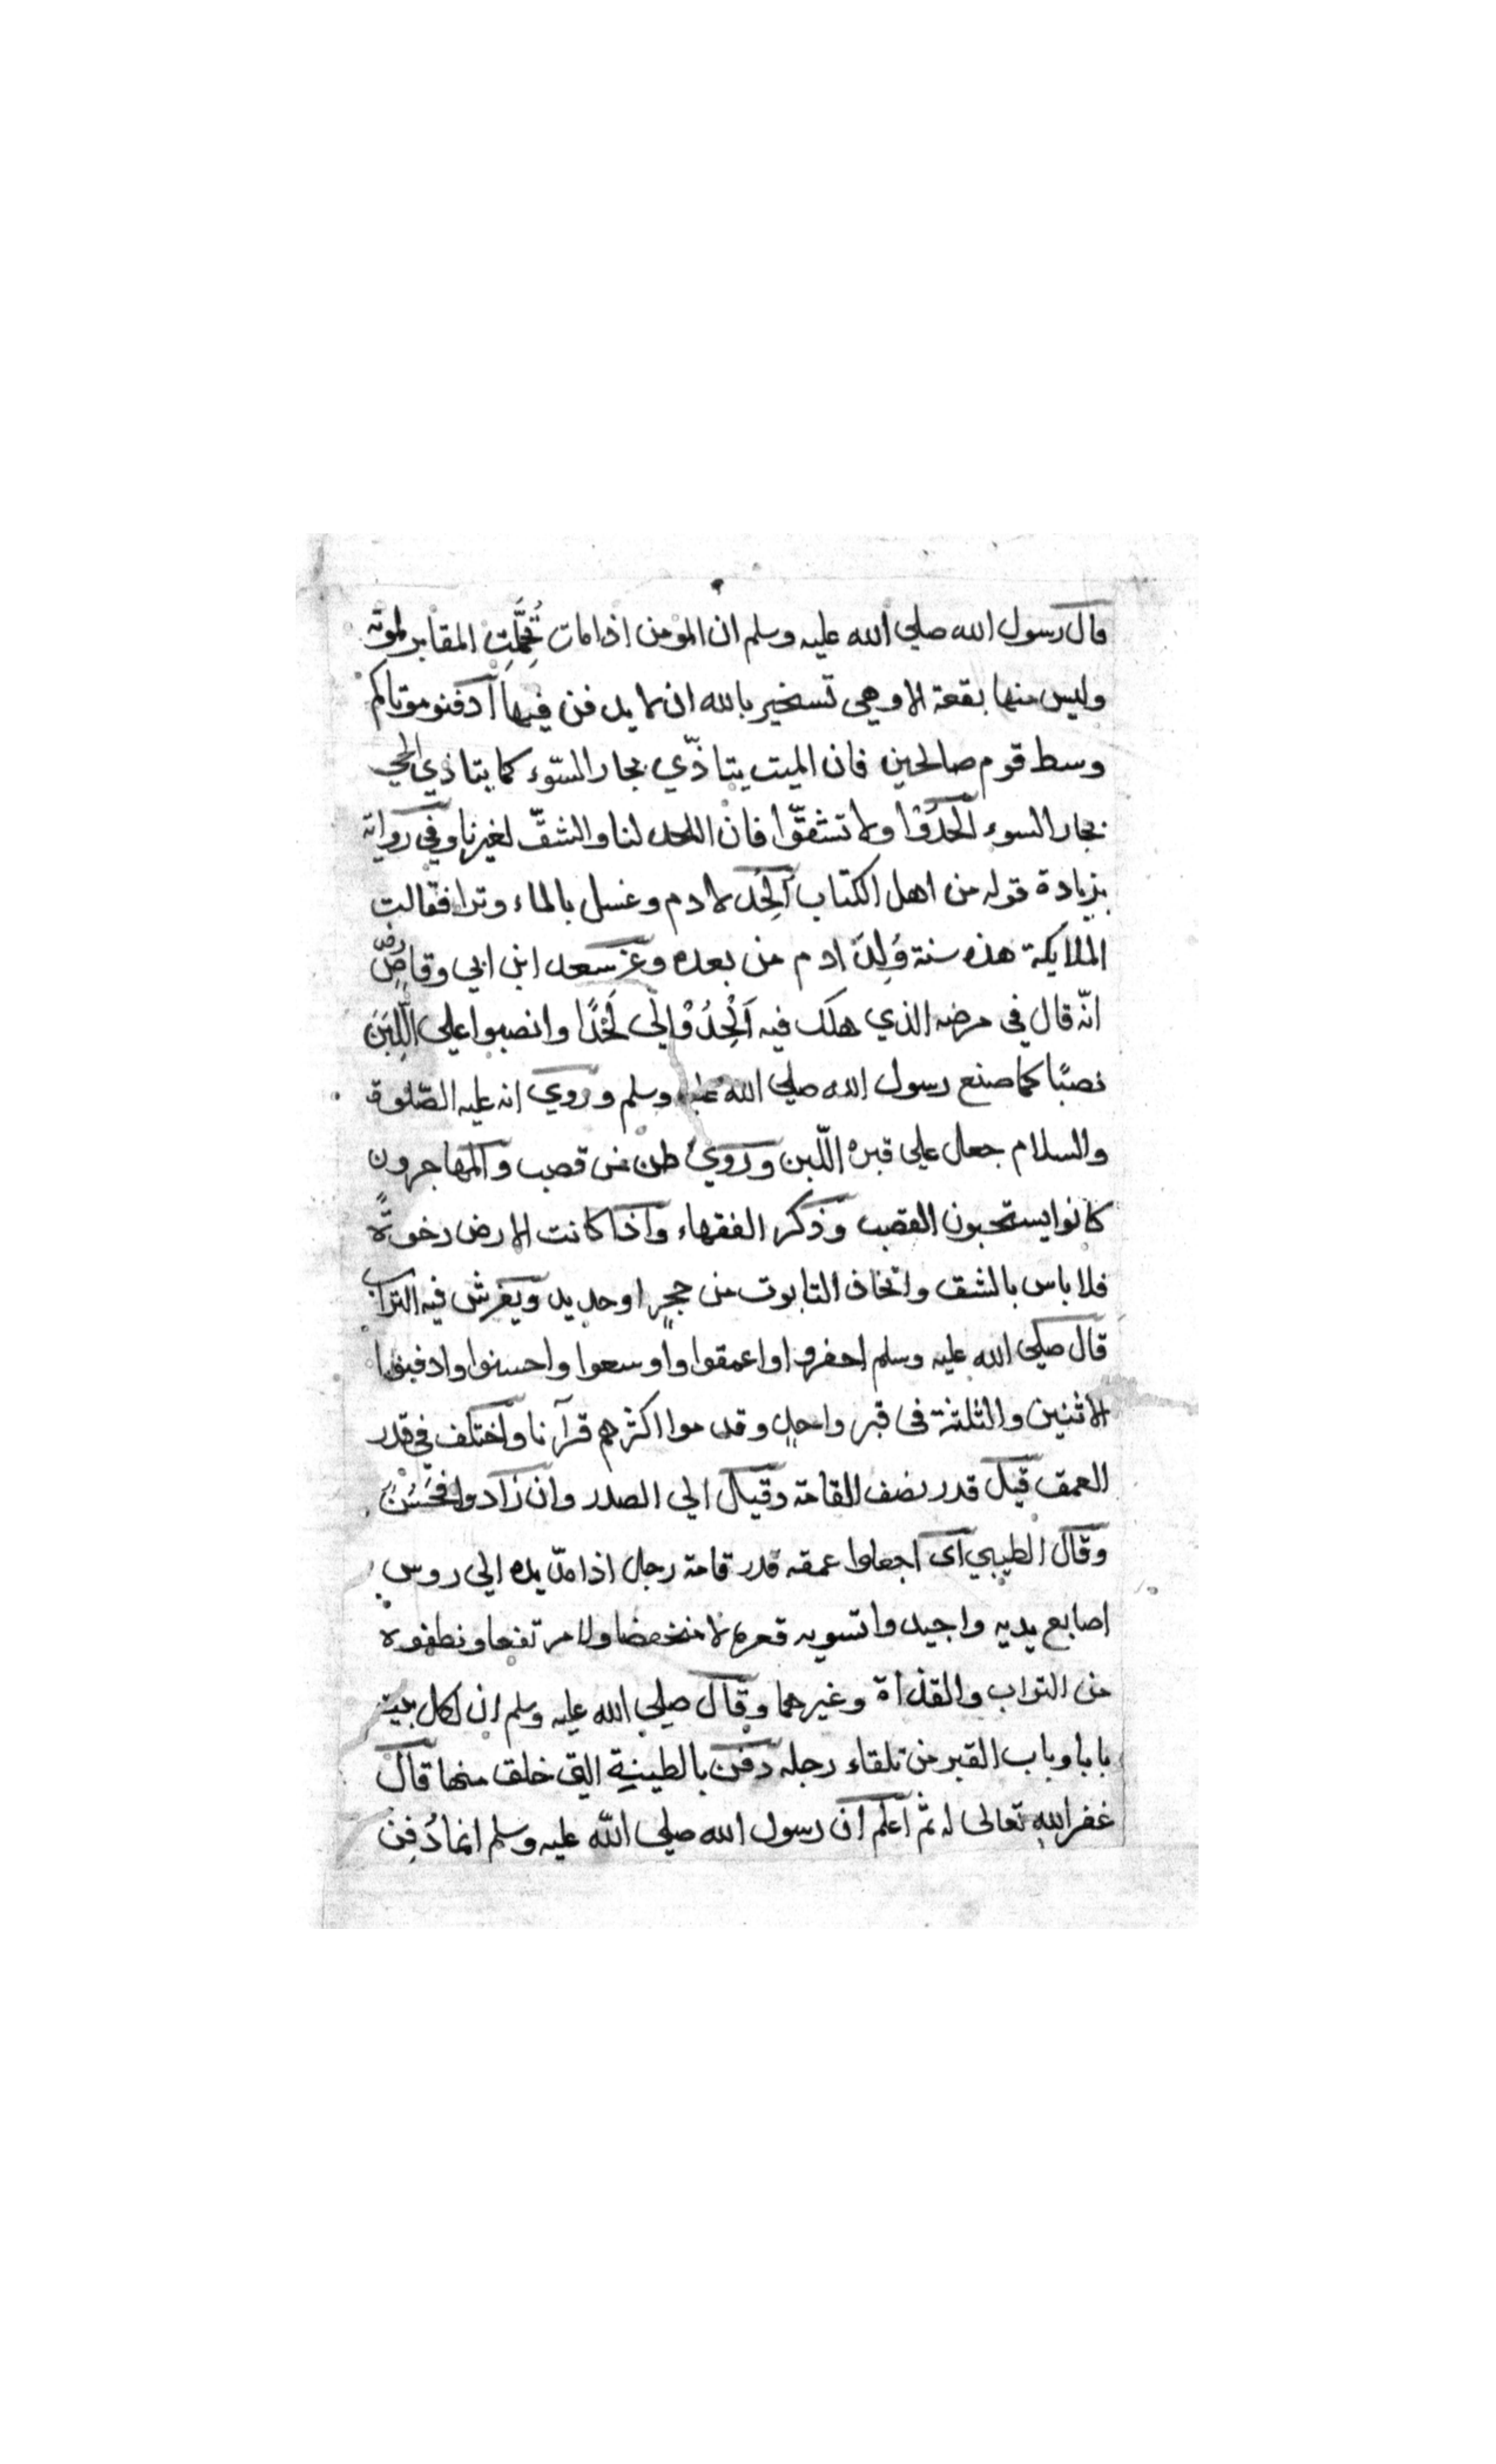 قال رسول الله صلي الله عليه وسلم ان المؤمن اذا مات تُجَمَّلَتِ المقابر لموته
وليس منها بقعة الا وهي تستخير بالله ان لا يدفن فيها ادفنو موتاكم
وسط قوم صالحين فان الميت يتاذّي بجار السّوء كما يتاذي الحي
بجار السوء اَلْحِدُوْا ولا تشقّوا فان اللحد لنا والشقّ لغيرنا وفي رواية
بزيادة قوله من اهل الكتاب اُلحِدَ لادم وغسل بالماء وترا فقالت
الملايكة هذه سنة وُلِدَ ادم من بعده وعن سعد ابن ابي وقاصٍ رض
انّه قال في مرضه الذي هلك فيه اَلْحِدُوْا لي لَحْدًا وانصبوا علي اللَّبِنَ
نصبًا كما صنع رسول الله صلي الله عليه وسلم وروي انه عليه الصّلوة
والسلام جعل علي قبره اللّبن وروي طن من قصب والمهاجرون
كانوا يستحبون القصب وذكر الفقهاء واذا كانت الارض رخوةً
فلا باس بالشق واتخاذ التابوت من حجرٍ او حديد ويفرش فيه التراب
قال صلي الله عليه وسلم احفروا واعمقوا واوسعوا واحسنوا وادفنوا
الاثنين والثلثة في قبر واحدٍ وقدموا اكثرهم قرآنا واختلف في قدر
العمق قيل قدر نصف القامة وقيل الي الصدر وان زادوا فحَسَنٌ
وقال الطيبي اى اجعلوا عمقه قدر قامة رجل اذا مدّ يده الي روس
اصابع يديه واجيدوا تسويه قعره لا منخفضا ولا مرتفعا ونظفوه
من التراب والقذاة وغيرهما وقال صلي الله عليه وسلم ان لكل بيت
بابا وباب القبر من تلقاء رجله دفن بالطينة التي خلق منها قال
غفر الله تعالى له ثم اعلم ان رسول الله صلي الله عليه وسلم انما دُفِنَ